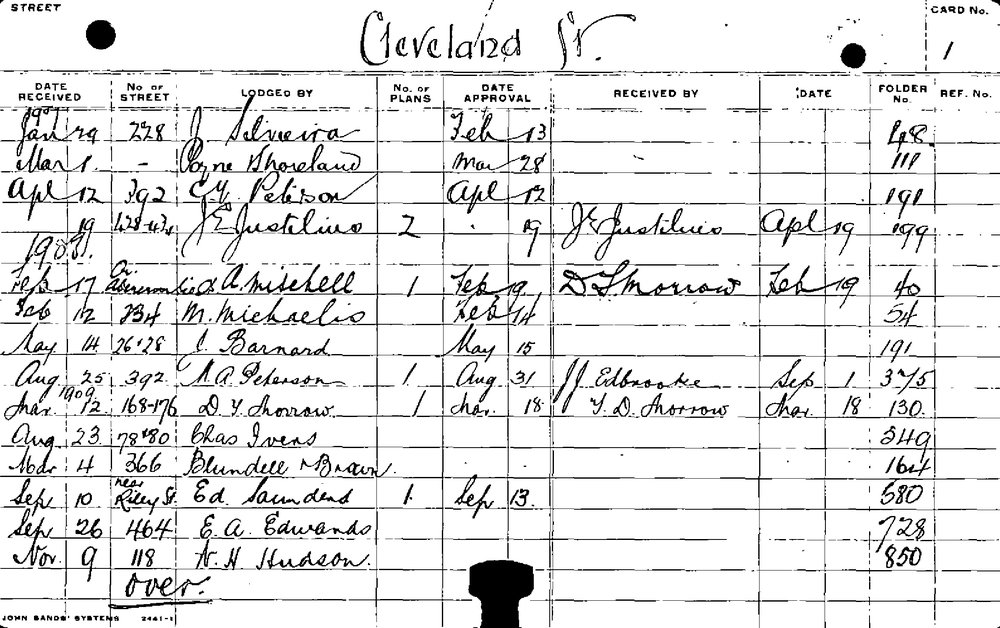 STREET
Cleveland St.
CARD No.
1
DATE RECEIVED No OF STREET LODGED BY No. OF PLANS DATE APPROVAL RECEIVED BY DATE FOLDER No. REF. No.
1907
Jan 29 228 J Silvieira Feb 13 48.
Mar 1. - Payne Shoreland Mar 28 111
Apl 12 392 Peterson Apl 12 191
19 428-43 J E Justelius 2 19 J E Justelius Apl 19 199
1908.
Feb 17 Cr. Abercrombie St A. Mitchell 1 Feb 19 D T Morrow Feb 19 40
Feb 12 234 M. Michaelis Feb 14 54
May 14 26+28 J. Barnard May 15 191
Aug 25 392 A. Peterson 1 Aug 31 J J. Edbrooke Sep 1 375
1909
Mar. 12 168-176 D. T. Morrow 1 Mar. 18 T. D. Morrow Mar. 18 130.
Aug 23. 78+80 Chas Ivens 549
Mar 4 366 Blundell & Brown. 164
Sep 10 near Riley St. Ed. Saunders 1. Sep 13. 580
Sep 26 464 E. A. Edwards 728
Nov. 9 118 W. H. Hudson. 850
over.
JOHN SANDS' SYSTEMS 2441-1